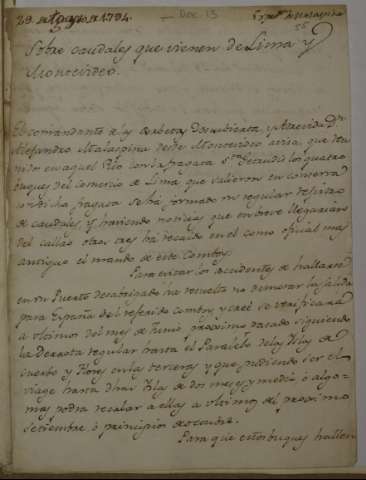 29 Agosto 1794.
Doc. 13
Sobre caudales que vienen de Lima y
Montevideo.
El comandante de las corbetas Descubierta, y Atrevida Dn
Alejandro Malaspina desde Montevideo avisa, que
en aquel Rio con la fragata Sta Gertrudis los quatro
buques del comercio de Lima que salieron en conserva
con dicha fragata se há formado un regular
de caudales, y haviendo noticias que en breve llegarian
del callao otros tres há recaido en el como oficial mas
antiguo el mando de este Comboy.
Para evitar los accidentes de hallarse
en un Puerto desabrigado ha resuelto no demorar la salida
para España del referido comboy y cree se verificaria
a ultimos del mes de Junio proximo pasado siguiendo
la derrota regular hasta el Paralelo de las Yslas de
cuerbo y flores en las terceras y que pudiendo ser el
viage hasta dhas Yslas de dos meses y medio ó algo
mas podra recalar a ellas a ultimos del proximo
setiembre ó principios de octubre.
Para que estos buques hallen